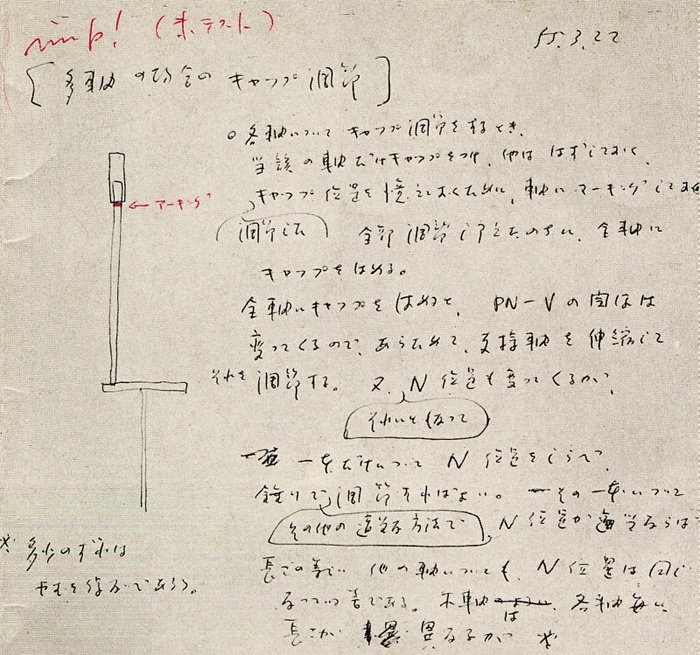 imp! (未テスト)
55.3.22
[多軸の場合のキャップ調節]
○各軸についてキャップ調節をするとき、
当該の軸だけキャップをつけ、他ははずしておく、
キャップ位置を憶えておくために、軸にマーキングしてお
←マーキング
調節した 全部調節し終えたのちに、全軸に
キャップをはめる。
全軸にキャップをはめると、PN-Vの関係は
変ってくるので、あらためて、支持軸を伸縮して
それを調節する。又、N位置も変ってくるが、
それにともなって
一本だけについてN位置をしらべ、
錘りで調節すればよい。その一本について
その他の適当な方法で、N位置が適当ならば
長さの等しい他の軸についても、N位置は同じ
なっている筈である。本軸は各軸毎に
長さが異るが ※
※多少のずれは
やむを得ないであろう。